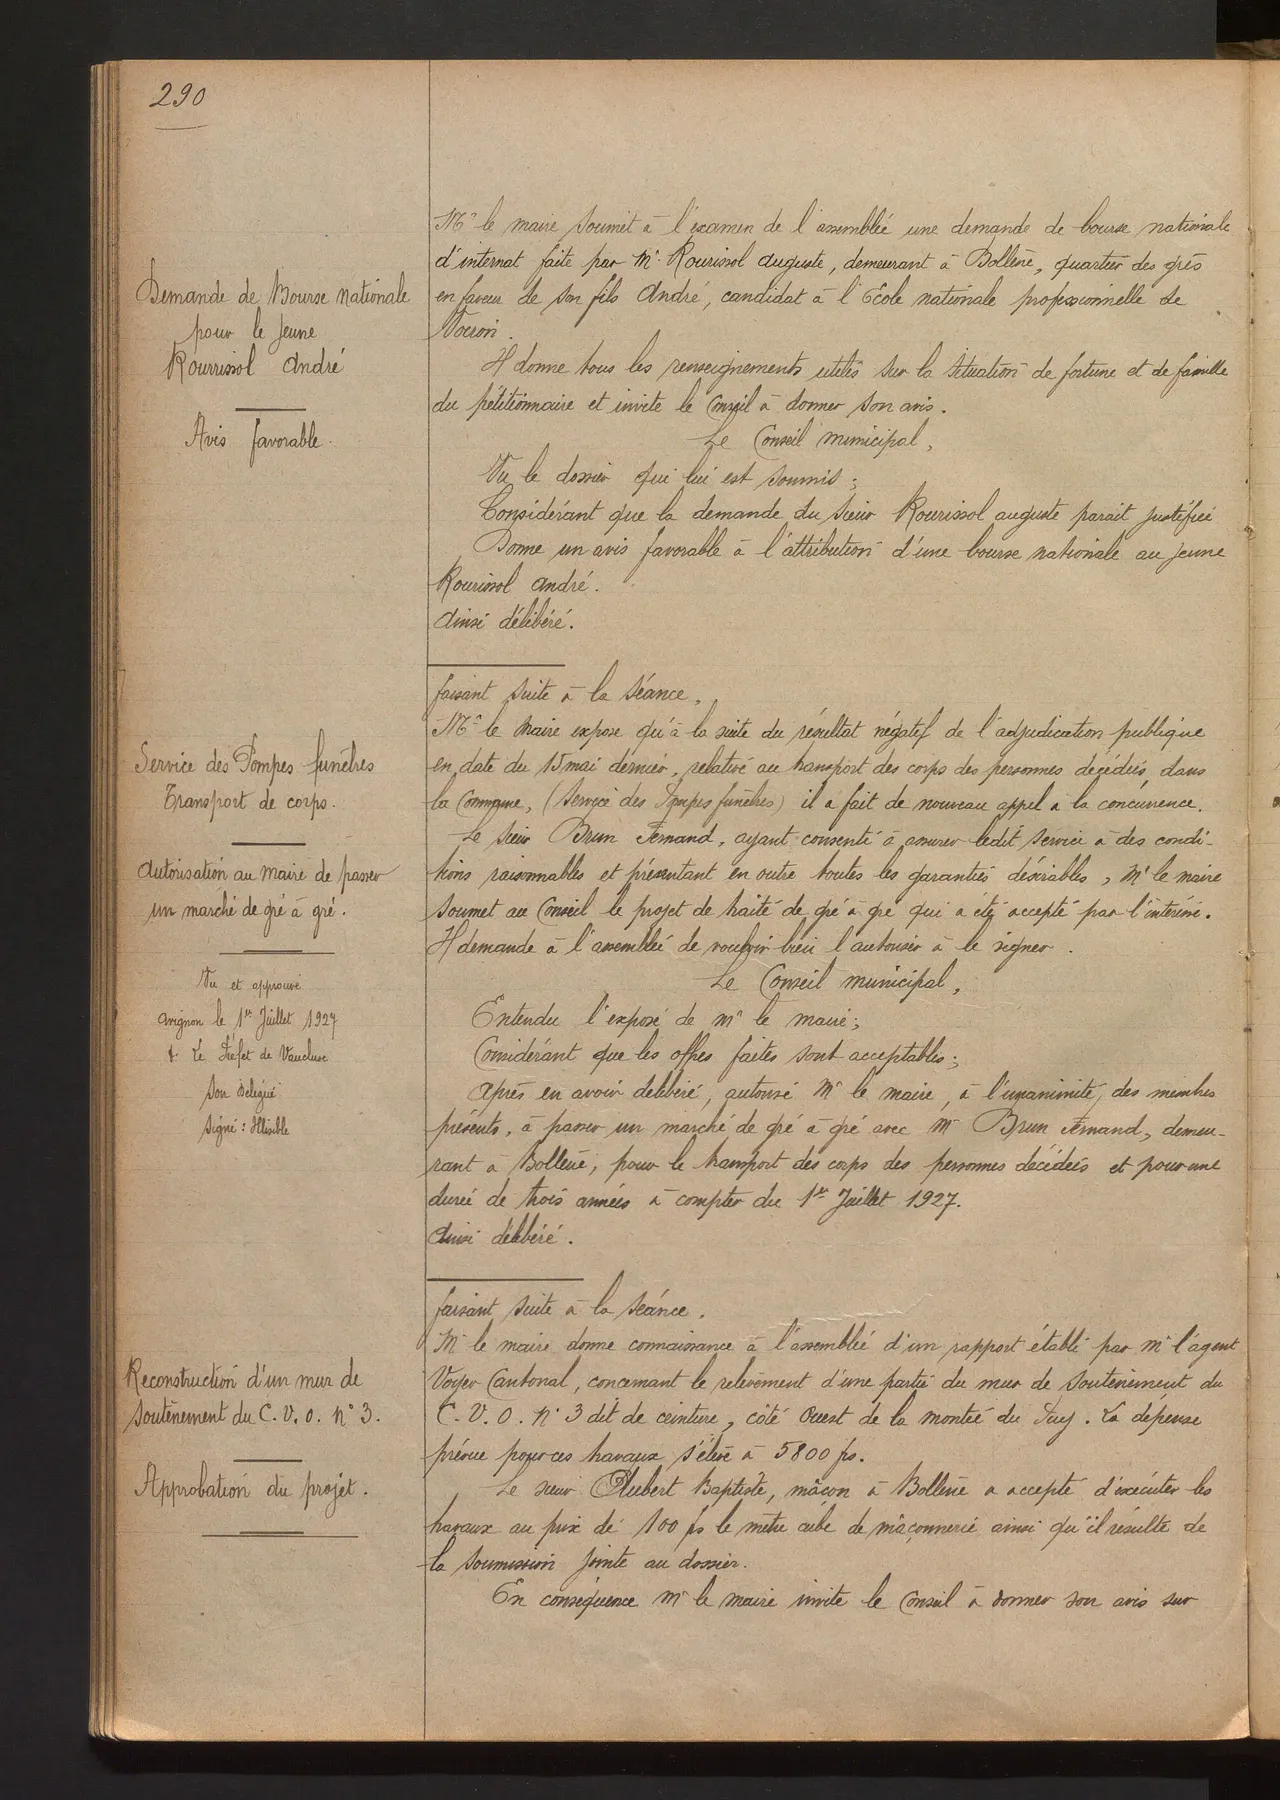 290
Demande de Bourse Nationale
pour le Jeune
Rourissol André
Avis favorable.
Mr le maire soumet à l'examen de l'assemblée une demande de bourse nationale
d'internat faite par Mr Rourissol auguste, demeurant à Bollène, quartier des grès
en faveur de son fils André, candidat à l'Ecole nationale professionnelle de
Voiron.
Il donne tous les renseignements utiles sur la situation de fortune et de famille
du pétitionnaire et invite le Conseil à donner son avis.
Le Conseil municipal,
Vu le dossier qui lui est soumis;
Considérant que la demande du sieur Rourissol auguste parait justifiée
Donne un avis favorable à l'attribution d'une bourse nationale au jeune
Rourissol André.
Ainsi délibéré.
Service des Pompes funèbres
Transport de corps.
Autorisation au maire de passer
un marché de gré à gré.
Vu et approuvé
Avignon le 1er Juillet 1927
Le Préfet de Vaucluse
Son Délégué
Signé: Illisible
faisant suite à la séance,
Mr le Maire expose qu'à la suite du résultat négatif de l'adjudication publique
en date du 15 mai dernier, relative au transport des corps des personnes décédées dans
la Commune, (Service des Pompes funèbres) il a fait de nouveau appel à la concurrence.
Le sieur Brun Fernand, ayant consenti à assurer ledit service à des condi-
tions raisonnables et présentant en outre toutes les garanties désirables, Mr le maire
soumet au Conseil le projet de traité de gré à gré qui a été accepté par l'intéressé.
Il demande à l'assemblée de vouloir bien l'autoriser à le signer.
Le Conseil municipal,
Entendu l'exposé de Mr le maire;
Considérant que les offres faites sont acceptables;
Après en avoir délibéré, autorise Mr le maire, à l'unanimité, des membres
présents, à passer un marché de gré à gré avec Mr Brun Fernand, demeu-
rant à Bollène, pour le transport des corps des personnes décédées et pour une
durée de trois années à compter du 1er Juillet 1927.
Ainsi délibéré.
Reconstruction d'un mur de
soutènement du C. V. O. N° 3.
Approbation du projet.
faisant suite à la séance.
Mr le maire donne connaissance à l'assemblée d'un rapport établi par Mr l'agent
Voyer Cantonal, concernant le relèvement d'une partie du mur de soutènement du
C. V. O. N° 3 dit de ceinture, côté Ouest de la montée du Puy. La dépense
prévue pour ces travaux s'élève à 5800 frs.
Le sieur Aubert Baptiste, mâçon à Bollène a accepté d'exécuter les
travaux au prix de 100 frs le mètre cube de mâçonnerie ainsi qu'il résulte de
la soumission jointe au dossier.
En conséquence Mr le maire invite le Conseil à donner son avis sur